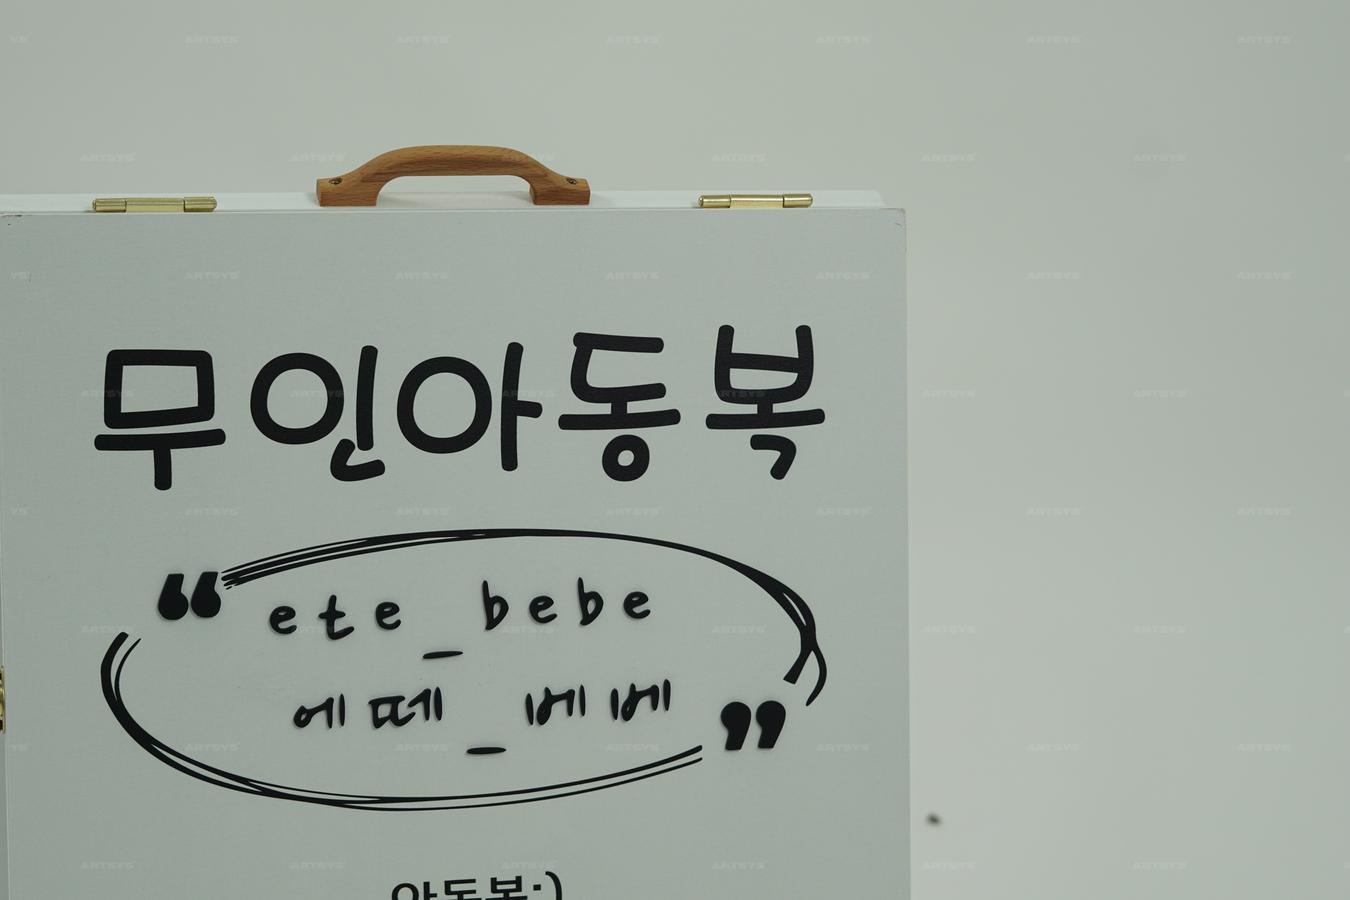 무인아동복
“ ete_bebe
에떼_베베 ”
아동복:)